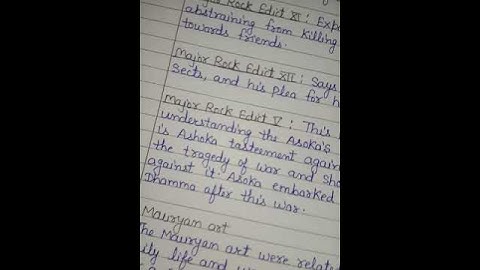 Major Rock Edict XI : Expa
abstraining from killing
towards friends.
Major Rock Edict XII : Says
Sects, and his plea for h
Major Rock Edict V : This
understanding the Asoka's
is Ashoka tasteement again
the tragedy of war and sho
against it. Asoka embarked
Dhamma after this war.
Mauryan art
The Mauryan art were relate
ily life and